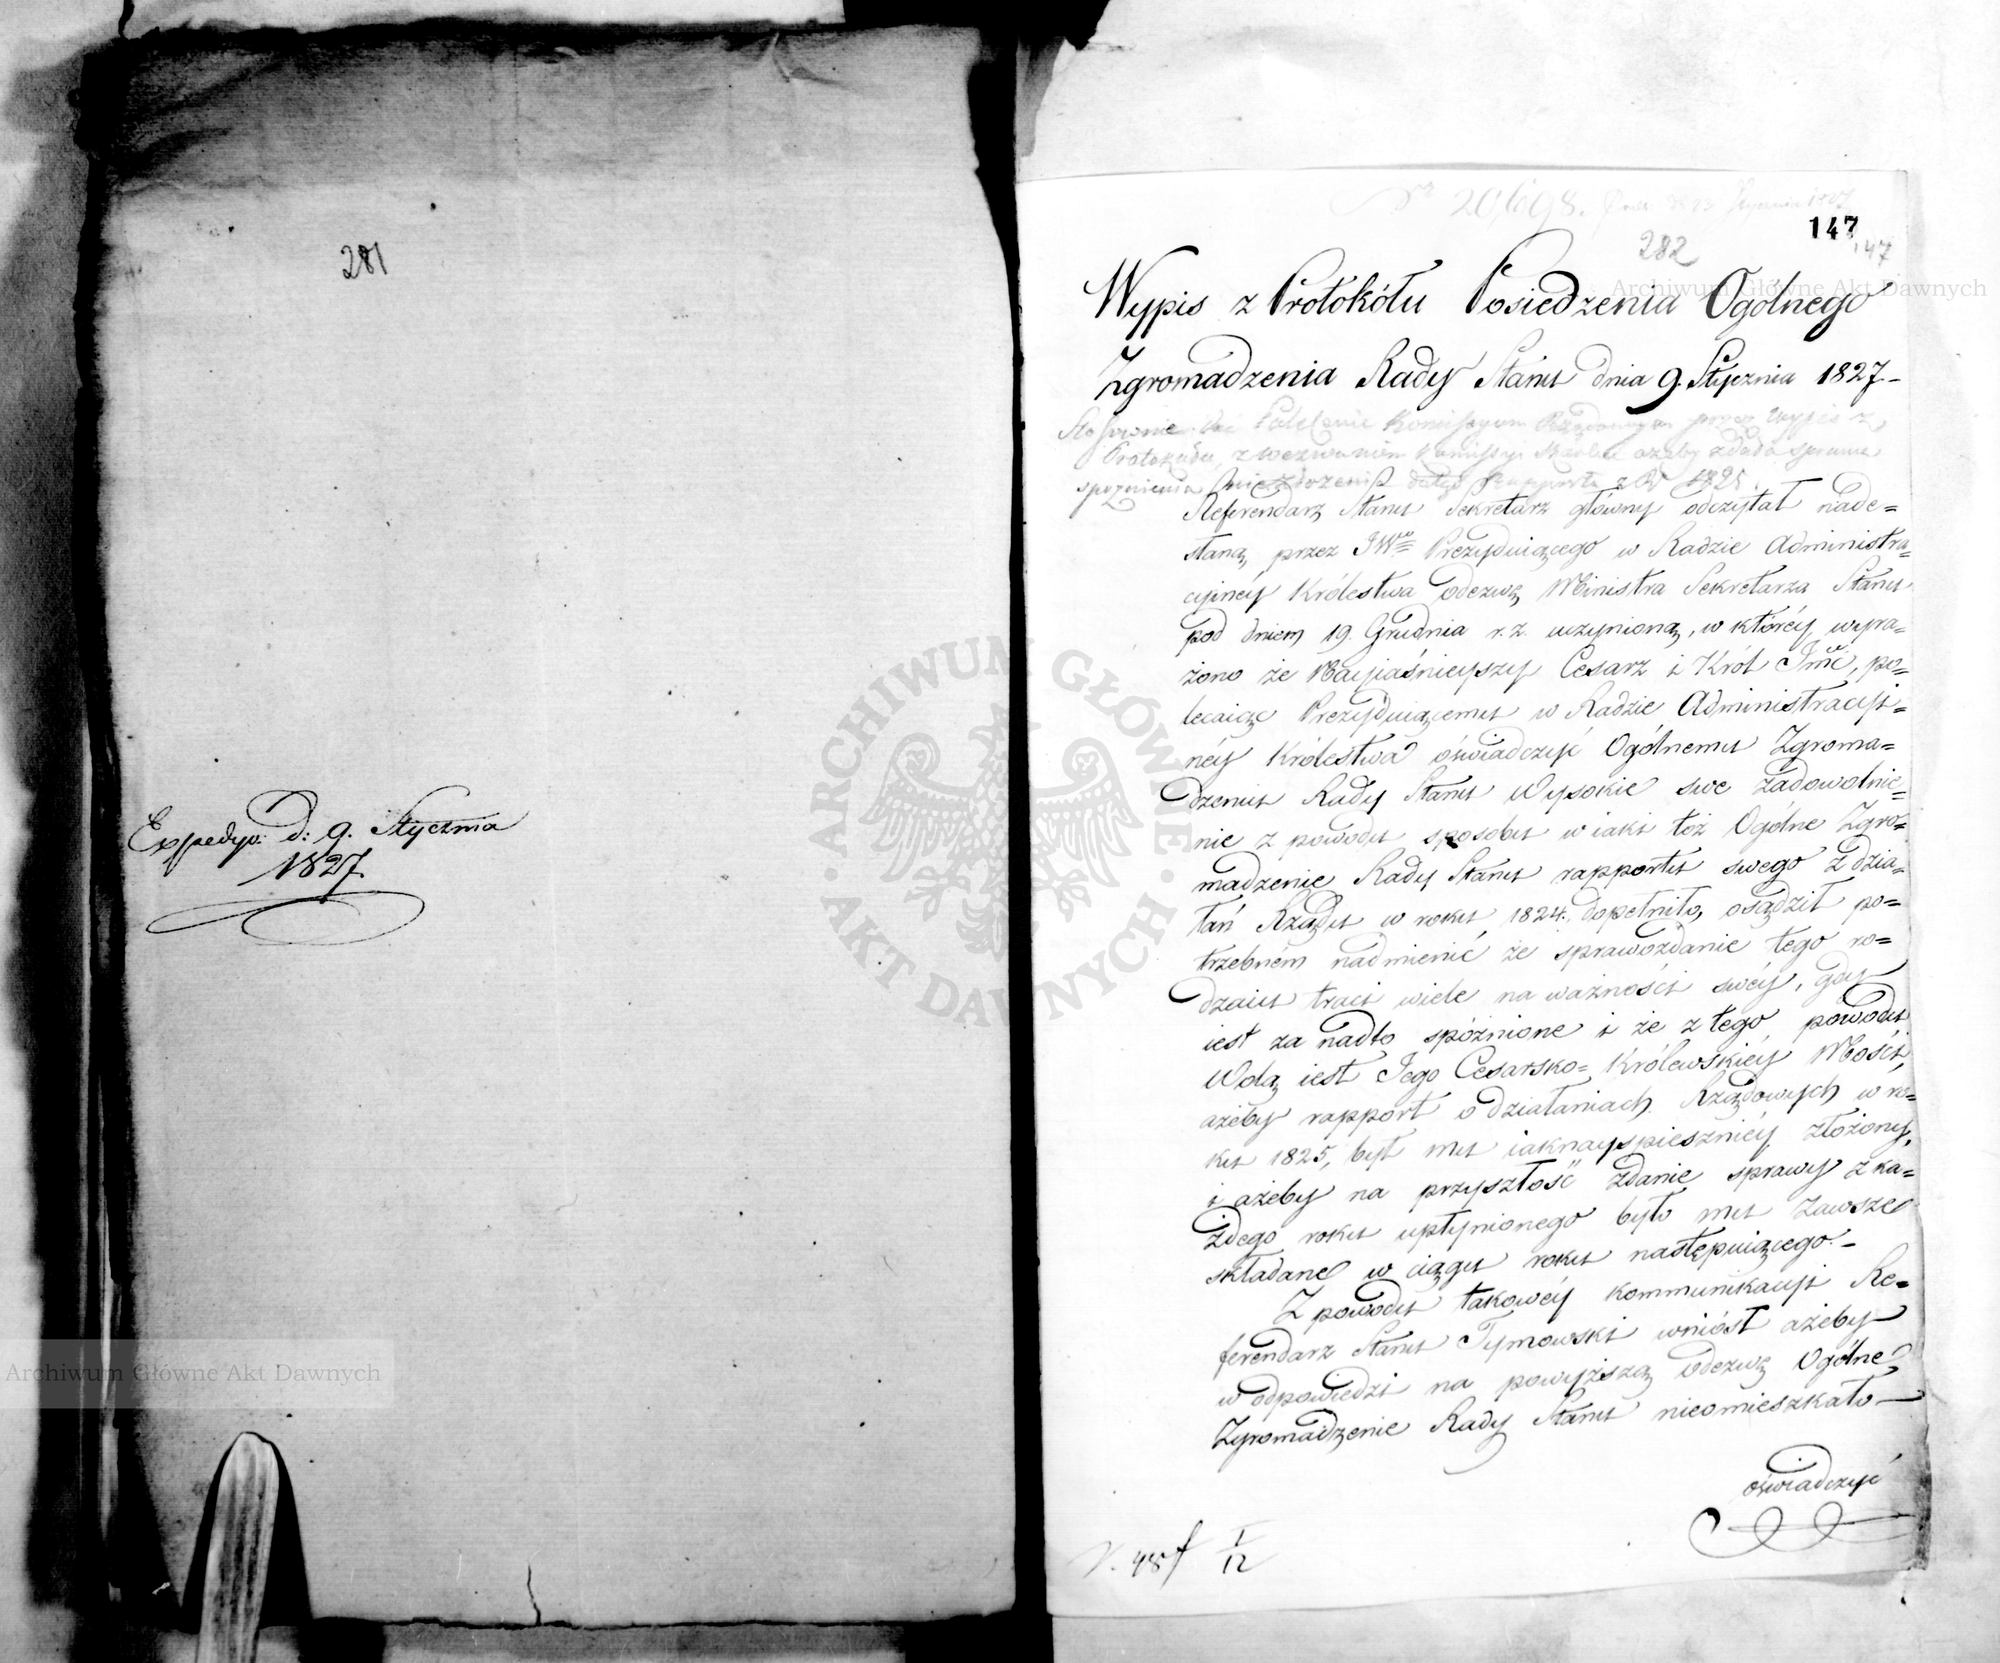 281
Expedyo: d: 9. Stycznia
1827.
Nr 20,698.
147
282
147
Wypis z Protokółu Posiedzenia Ogólnego
Zgromadzenia Rady Stanu dnia 9. Stycznia 1827.–
Referendarz Stanu Sekretarz główny odczytał nade=
słaną przez JWgo Prezyduiącego w Radzie Administra=
cyjnéy Królestwa odezwę Ministra Sekretarza Stanu
pod dniem 19. Grudnia r. z. uczynioną, w któréy wyra=
żono że Nayjaśnieyszy Cesarz i Król Jmć, po=
lecaiąc Prezyduiącemu w Radzie Administracyi=
néy Królestwa oświadczyć Ogólnemu Zgroma=
dzeniu Rady Stanu Wysokie swe zadowolnie=
nie z powodu sposobu w iaki toż Ogólne Zgro=
madzenie Rady Stanu rapportu swego z dzia=
łań Rządu w roku 1824. dopełniło, osądził po=
trzebném nadmienić że sprawozdanie tego ro=
dzaiu traci wiele na ważności swéy, gdy
iest za nadto spóźnione i że z tego powodu
Wolą iest Jego Cesarsko=Królewskiéy Mości,
ażeby rapport o działaniach Rządowych w ro=
ku 1825, był mu iaknayspieszniéy złożony,
i ażeby na przyszłość zdanie sprawy z ka=
żdego roku upłynionego było mu zawsze
składane w ciągu roku następuiącego.–
Z powodu takowéy kommunikacyi Re=
ferendarz Stanu Tymowski wniósł ażeby
w odpowiedzi na powyższą odezwę Ogólne
Zgromadzenie Rady Stanu nieomieszkało–
oświadczyć
Archiwum Główne Akt Dawnych
Archiwum Główne Akt Dawnych
ARCHIWUM GŁÓWNE AKT DAWNYCH